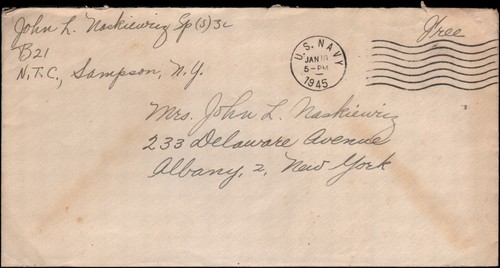 John L. Naskiewicz Sp(S)3c
B21
N.T.C., Sampson, N.Y.
Free
U.S. NAVY
JAN
5-PM
1945
Mrs. John L. Naskiewicz
233 Delaware Avenue
Albany, 2, New York